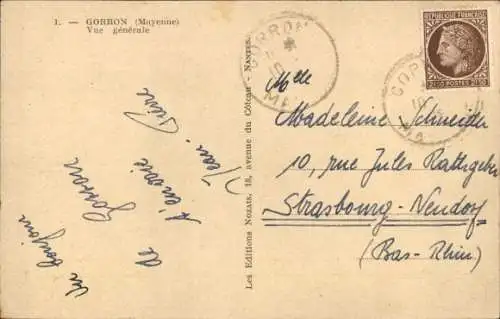 1. — GORRON (Mayenne)
Vue générale
Un bonjour
de Gorron
t'envoie
Jean-Pierre
Les Editions Nozais, 18, avenue du Côteau - NANTES
GORRON
MA
GOR
MA
REPUBLIQUE FRANCAISE
2F50 POSTES 2F50
Melle
Madeleine Schneider
10, rue Jules Rathgeber
Strasbourg-Neudorf
(Bas-Rhin)